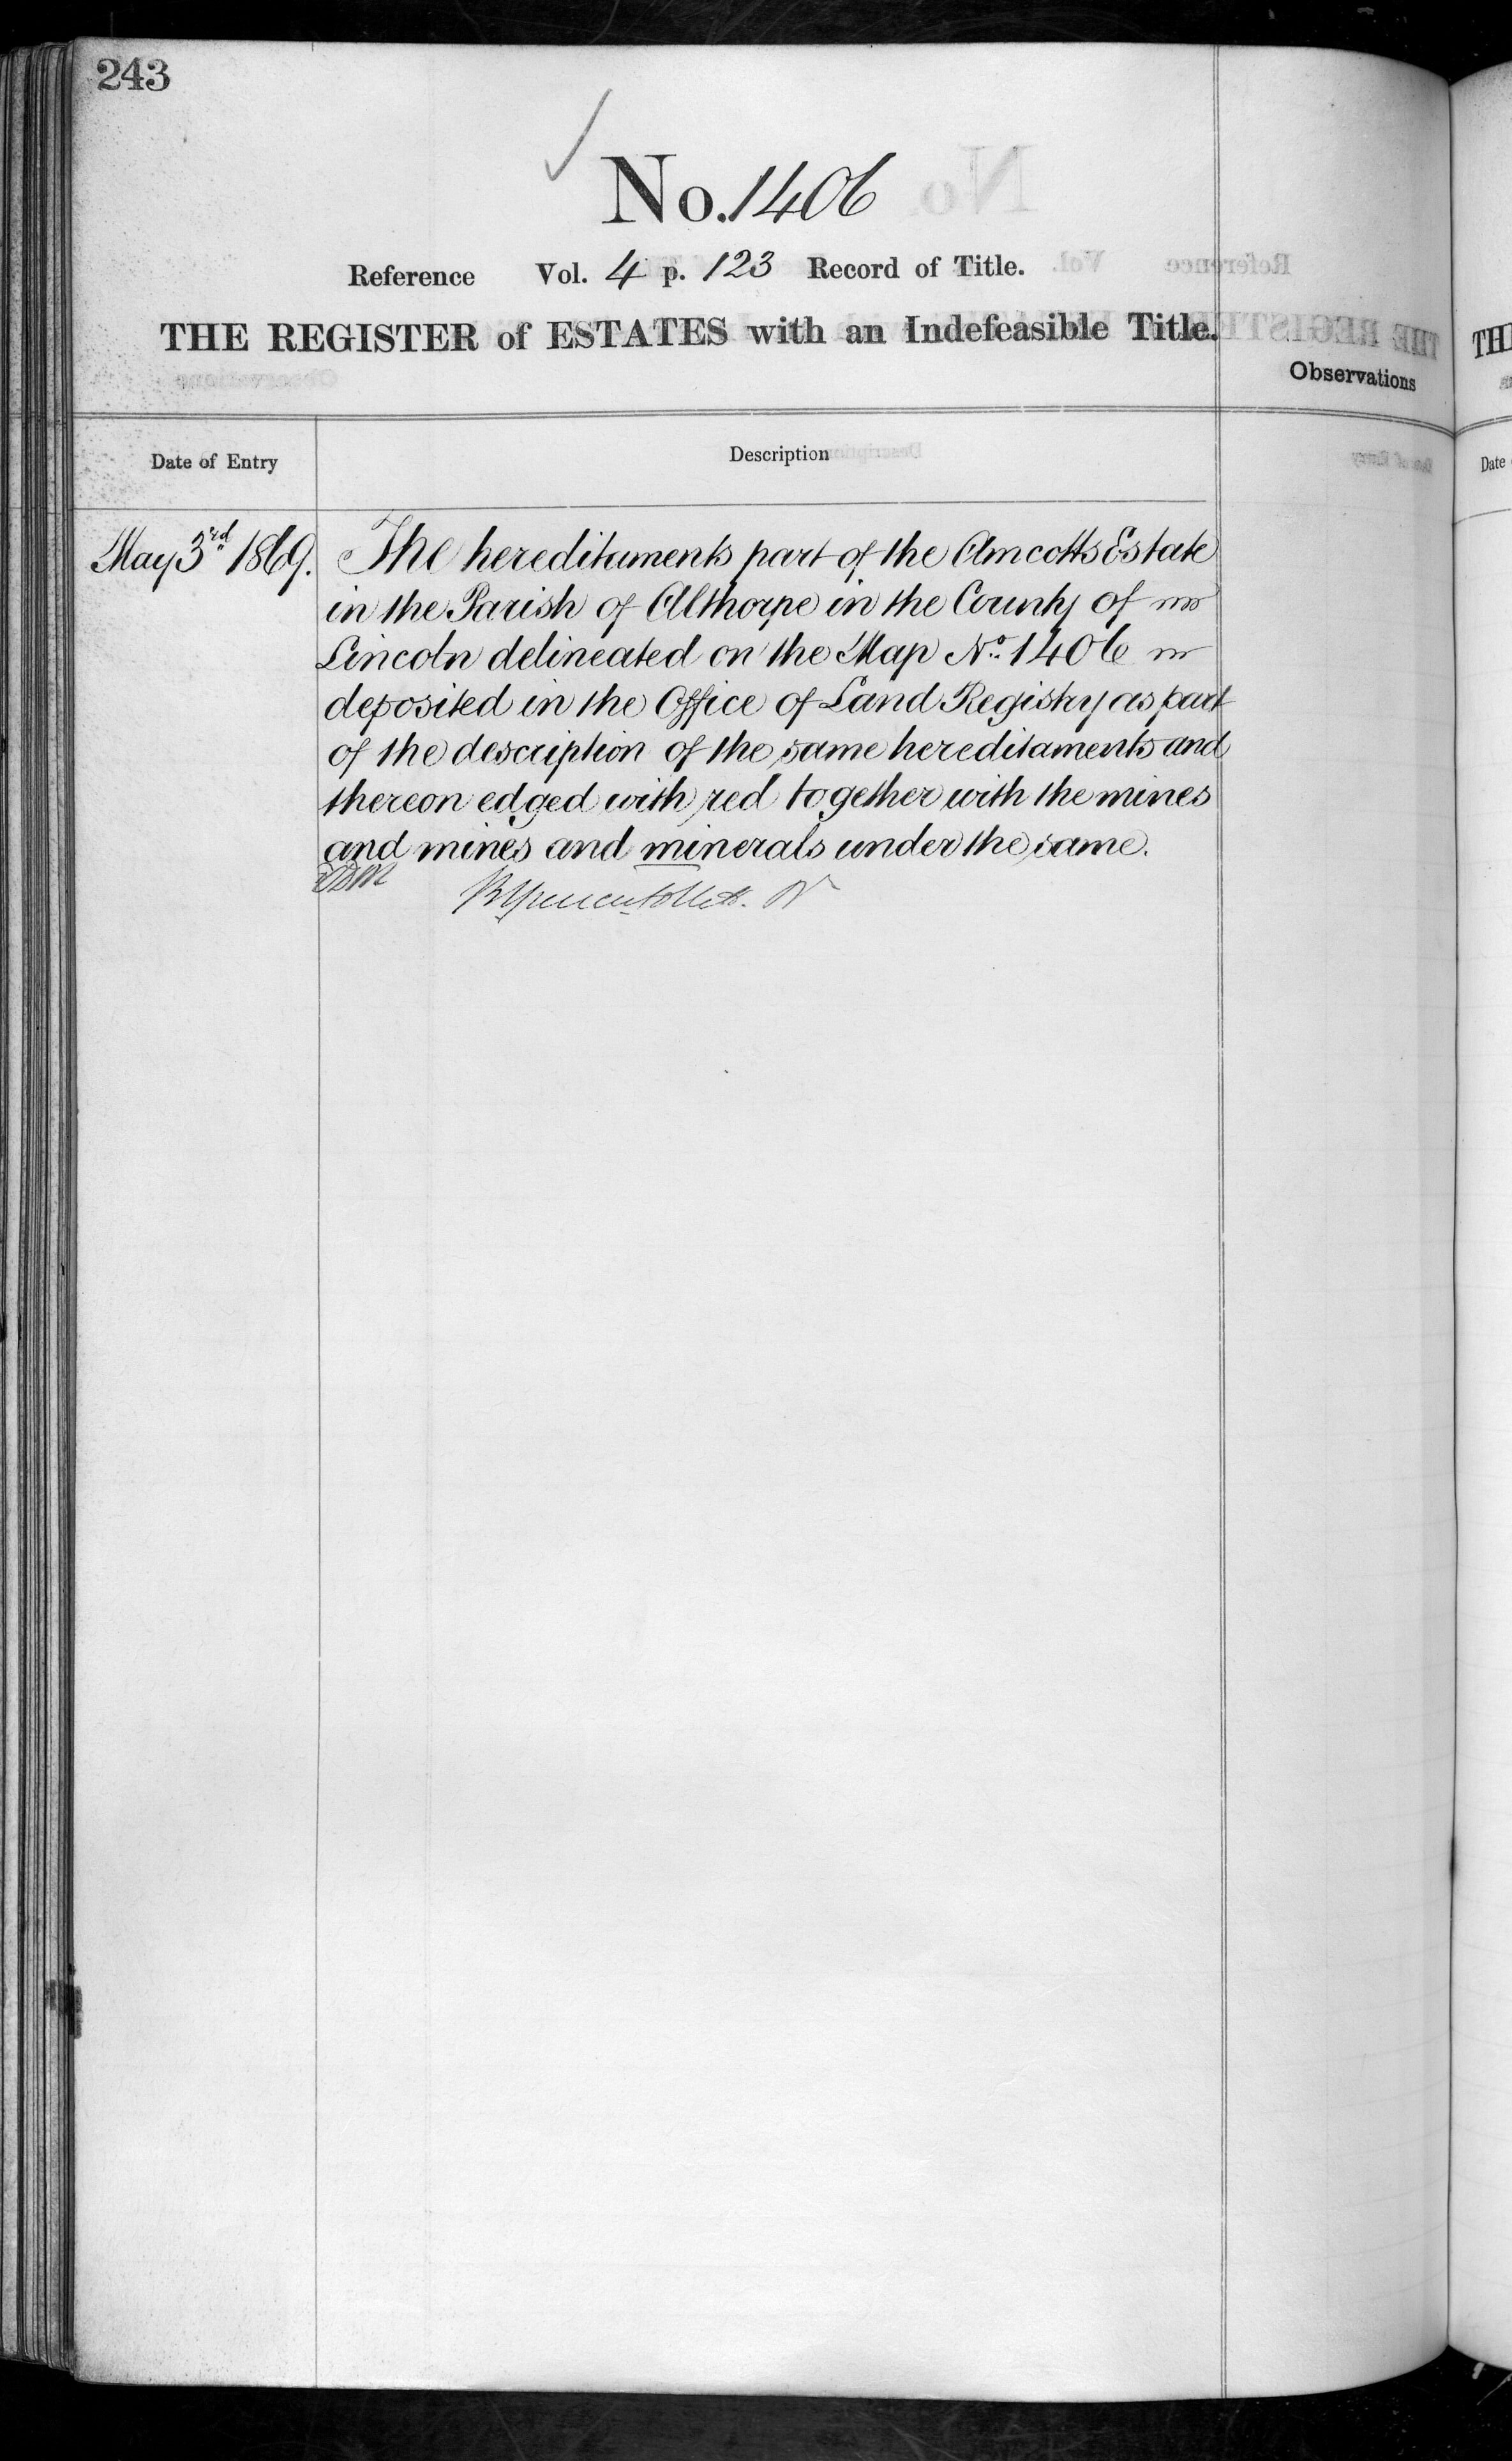 243
No. 1406
Reference Vol. 4 p. 123 Record of Title.
THE REGISTER of ESTATES with an Indefeasible Title.
Observations
Date of Entry
Description
May 3rd 1869.
The hereditaments part of the Amcotts Estate
in the Parish of Althorpe in the County of
Lincoln delineated on the Map No. 1406
deposited in the Office of Land Registry as part
of the description of the same hereditaments and
thereon edged with red together with the mines
and mines and minerals under the same.
TH
Date